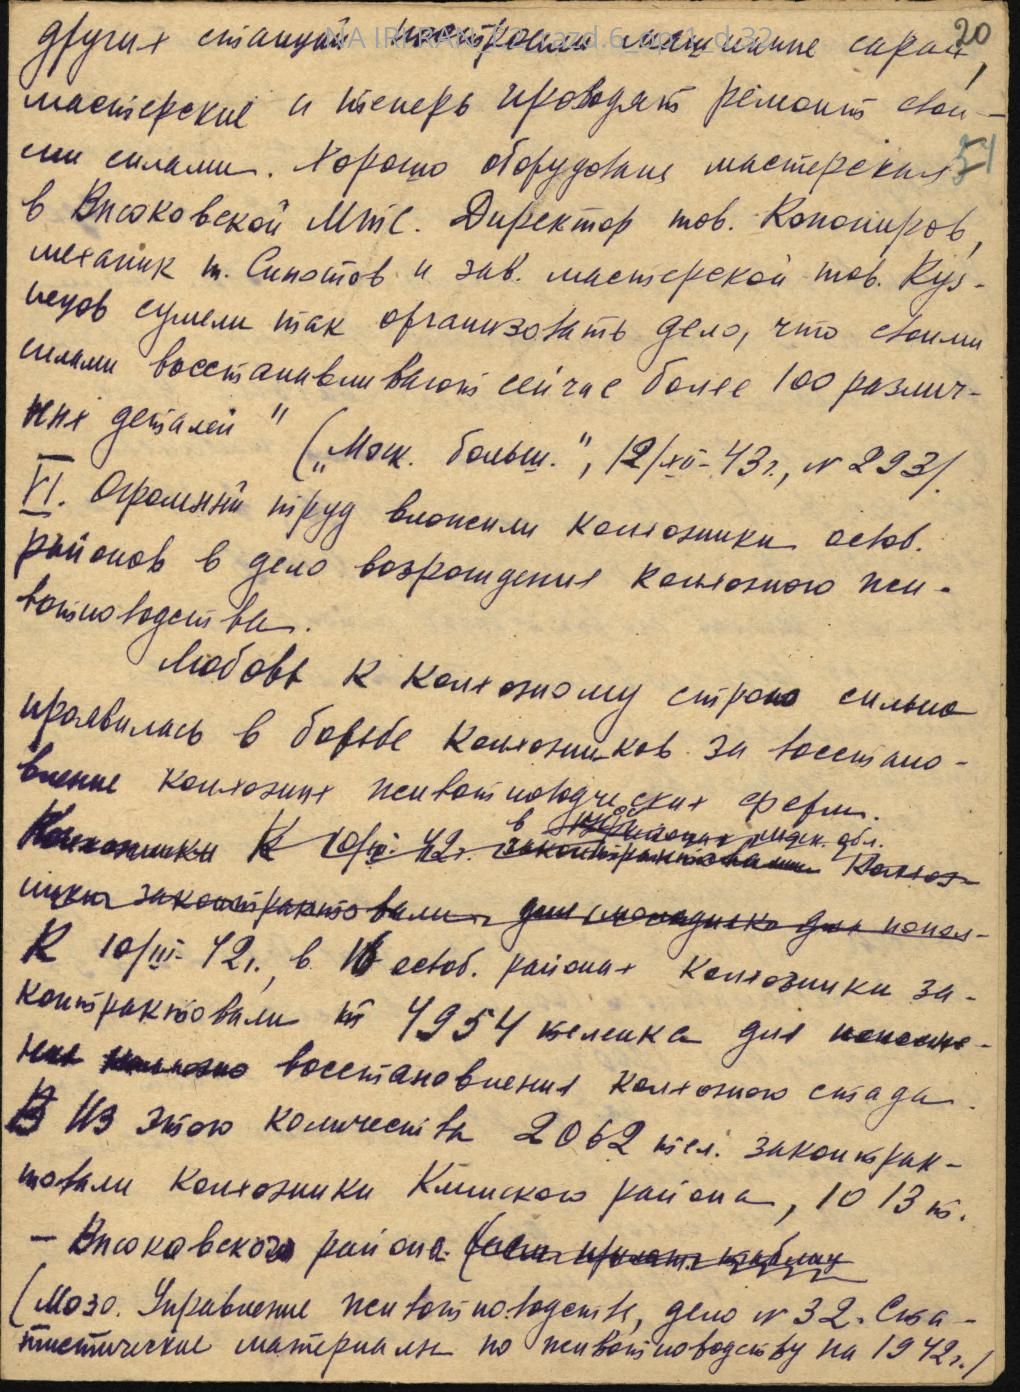 20
NA IRI RAN F.2 razd.6 op.1 d.32
других станций построили машинные сараи,
мастерские и теперь проводят ремонт свои-
ми силами. Хорошо оборудована мастерская
в Высоковской МТС. Директор тов. Кononиров,
механик т. Синотов и зав. мастерской тов. Куз-
нецов сумели так организовать дело, что своими
силами восстанавливают сейчас более 100 различ-
ных деталей" („Моск. больш.", 12/XII-43г., № 293/.
VI. Огромный труд вложили колхозники освоб.
районов в дело возрождения колхозного жи-
вотноводства.
Любовь к колхозному строю сильно
проявилась в борьбе колхозников за восстано-
вление колхозных животноводческих ферм.
Колхозники К 10/III-42г. законтрактовали Колхоз-
ники законтрактовали для молодняка для попол-
К 10/III-42г., в 16 освоб. районах колхозники за-
контрактовали т 4954 теленка для пополне-
ния колхозно восстановления колхозного стада.
В Из этого количества 2062 тел. законтрак-
товали колхозники Клинского района, 1013 т.
— Высоковского района
(Мозо. Управление животноводства, дело № 32. Ста-
тистические материалы по животноводству на 1942г./